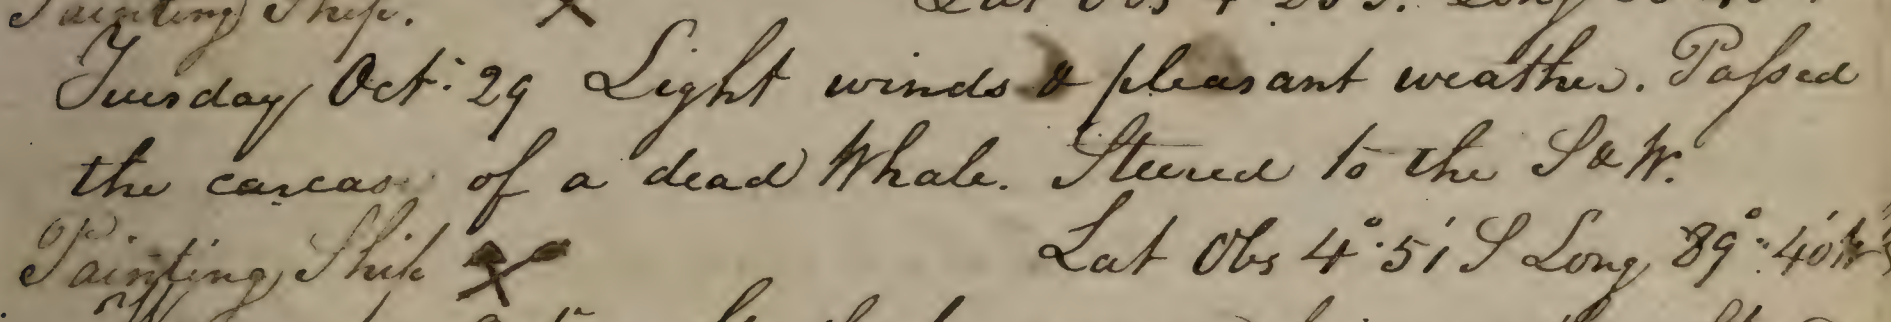 Painting Ship. X Lat Obs 4
Tuesday Oct: 29 Light winds & pleasant weather. Passed
the carcas of a dead Whale. Steered to the S & W.
Painting Ship X Lat Obs 4°.51 S Long 89°:40'W